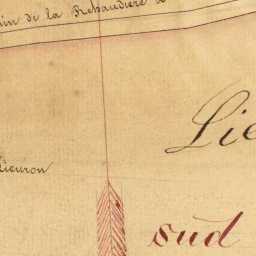 min de la Rehaudière à
Lie
Lieuron
sud